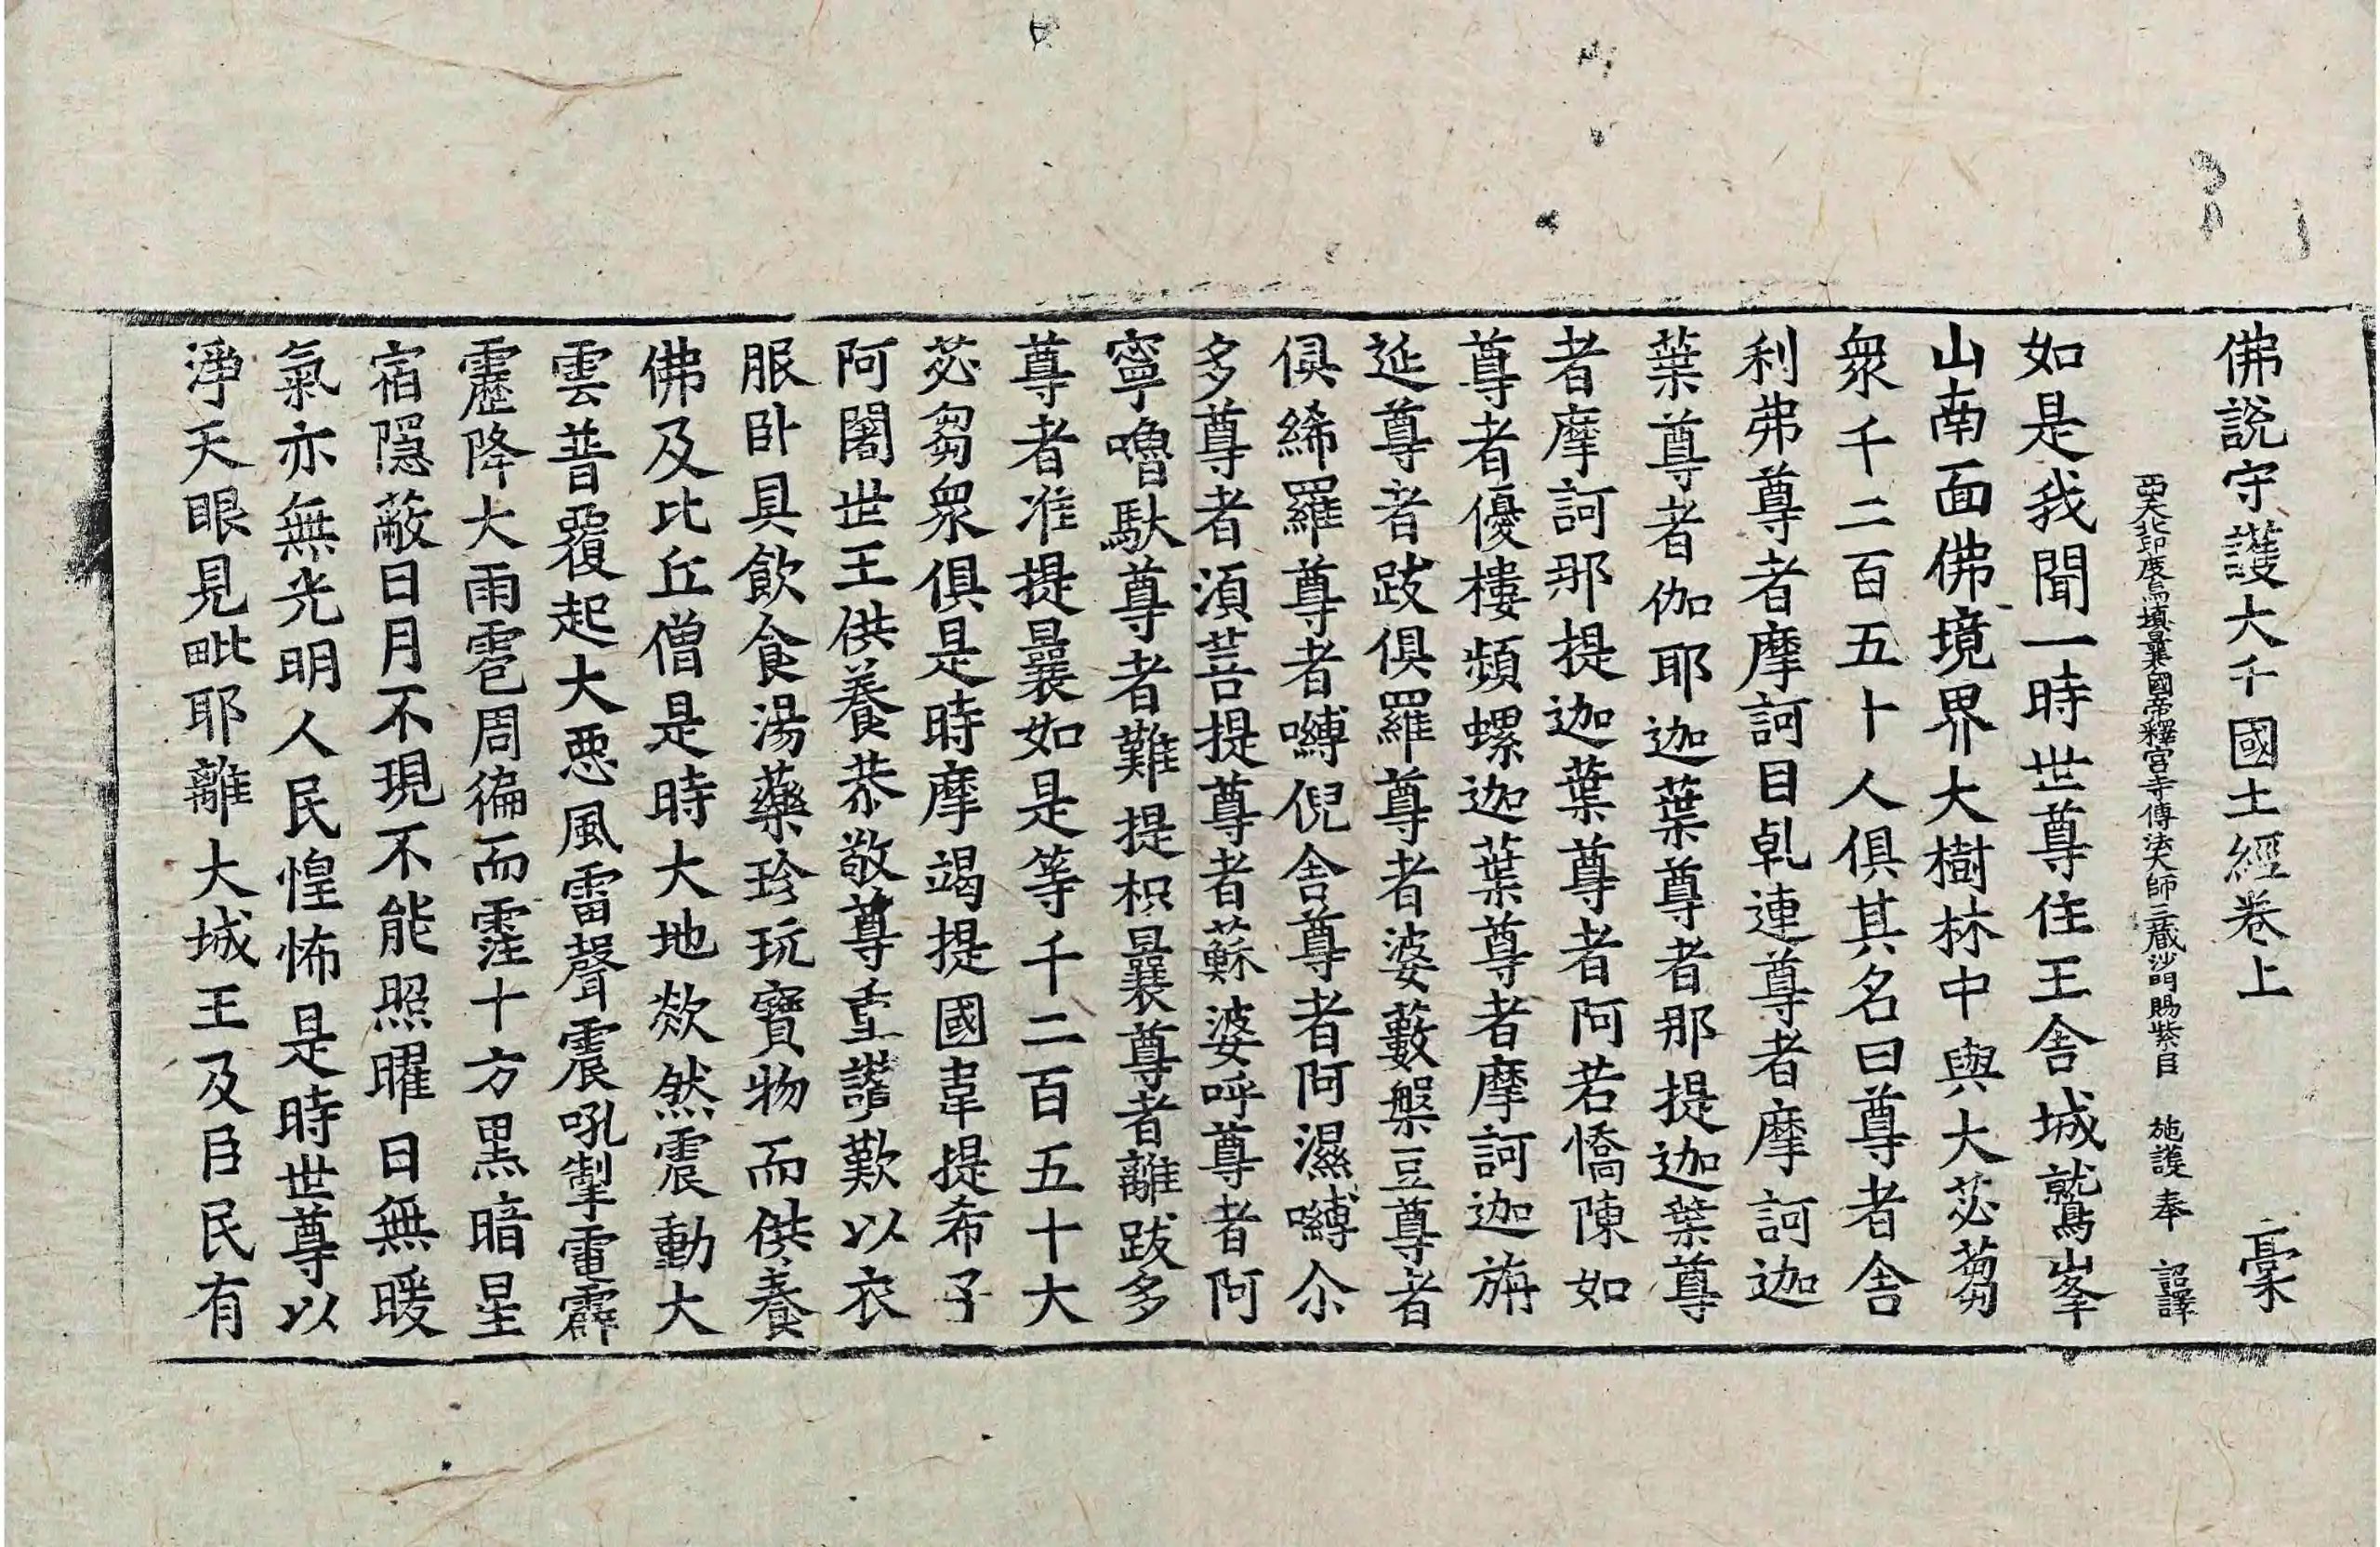 佛說守護大千國土經卷上 亳
西天北印度烏塡曩國帝釋宮寺傳法大師三藏沙門賜紫臣 施護奉 詔譯
如是我聞一時世尊住王舍城鷲峯
山南面佛境界大樹林中與大苾芻
衆千二百五十人俱其名曰尊者舍
利弗尊者摩訶目乹連尊者摩訶迦
葉尊者伽耶迦葉尊者那提迦葉尊
者摩訶那提迦葉尊者阿若憍陳如
尊者優樓頻螺迦葉尊者摩訶迦旃
延尊者跋俱羅尊者婆藪槃豆尊者
俱絺羅尊者嚩倪舍尊者阿濕嚩尒
多尊者須菩提尊者蘇婆呼尊者阿
寧嚕馱尊者難提枳曩尊者離跋多
尊者准提曩如是等千二百五十大
苾芻衆俱是時摩竭提國韋提希子
阿闍世王供養恭敬尊重讚歎以衣
服卧具飮食湯藥珍玩寶物而供養
佛及比丘僧是時大地欻然震動大
雲普覆起大惡風雷聲震吼掣電霹
靂降大雨雹周徧而霔十方黑暗星
宿隱蔽日月不現不能照曜日無暖
氣亦無光明人民惶怖是時世尊以
淨天眼見毗耶離大城王及臣民有